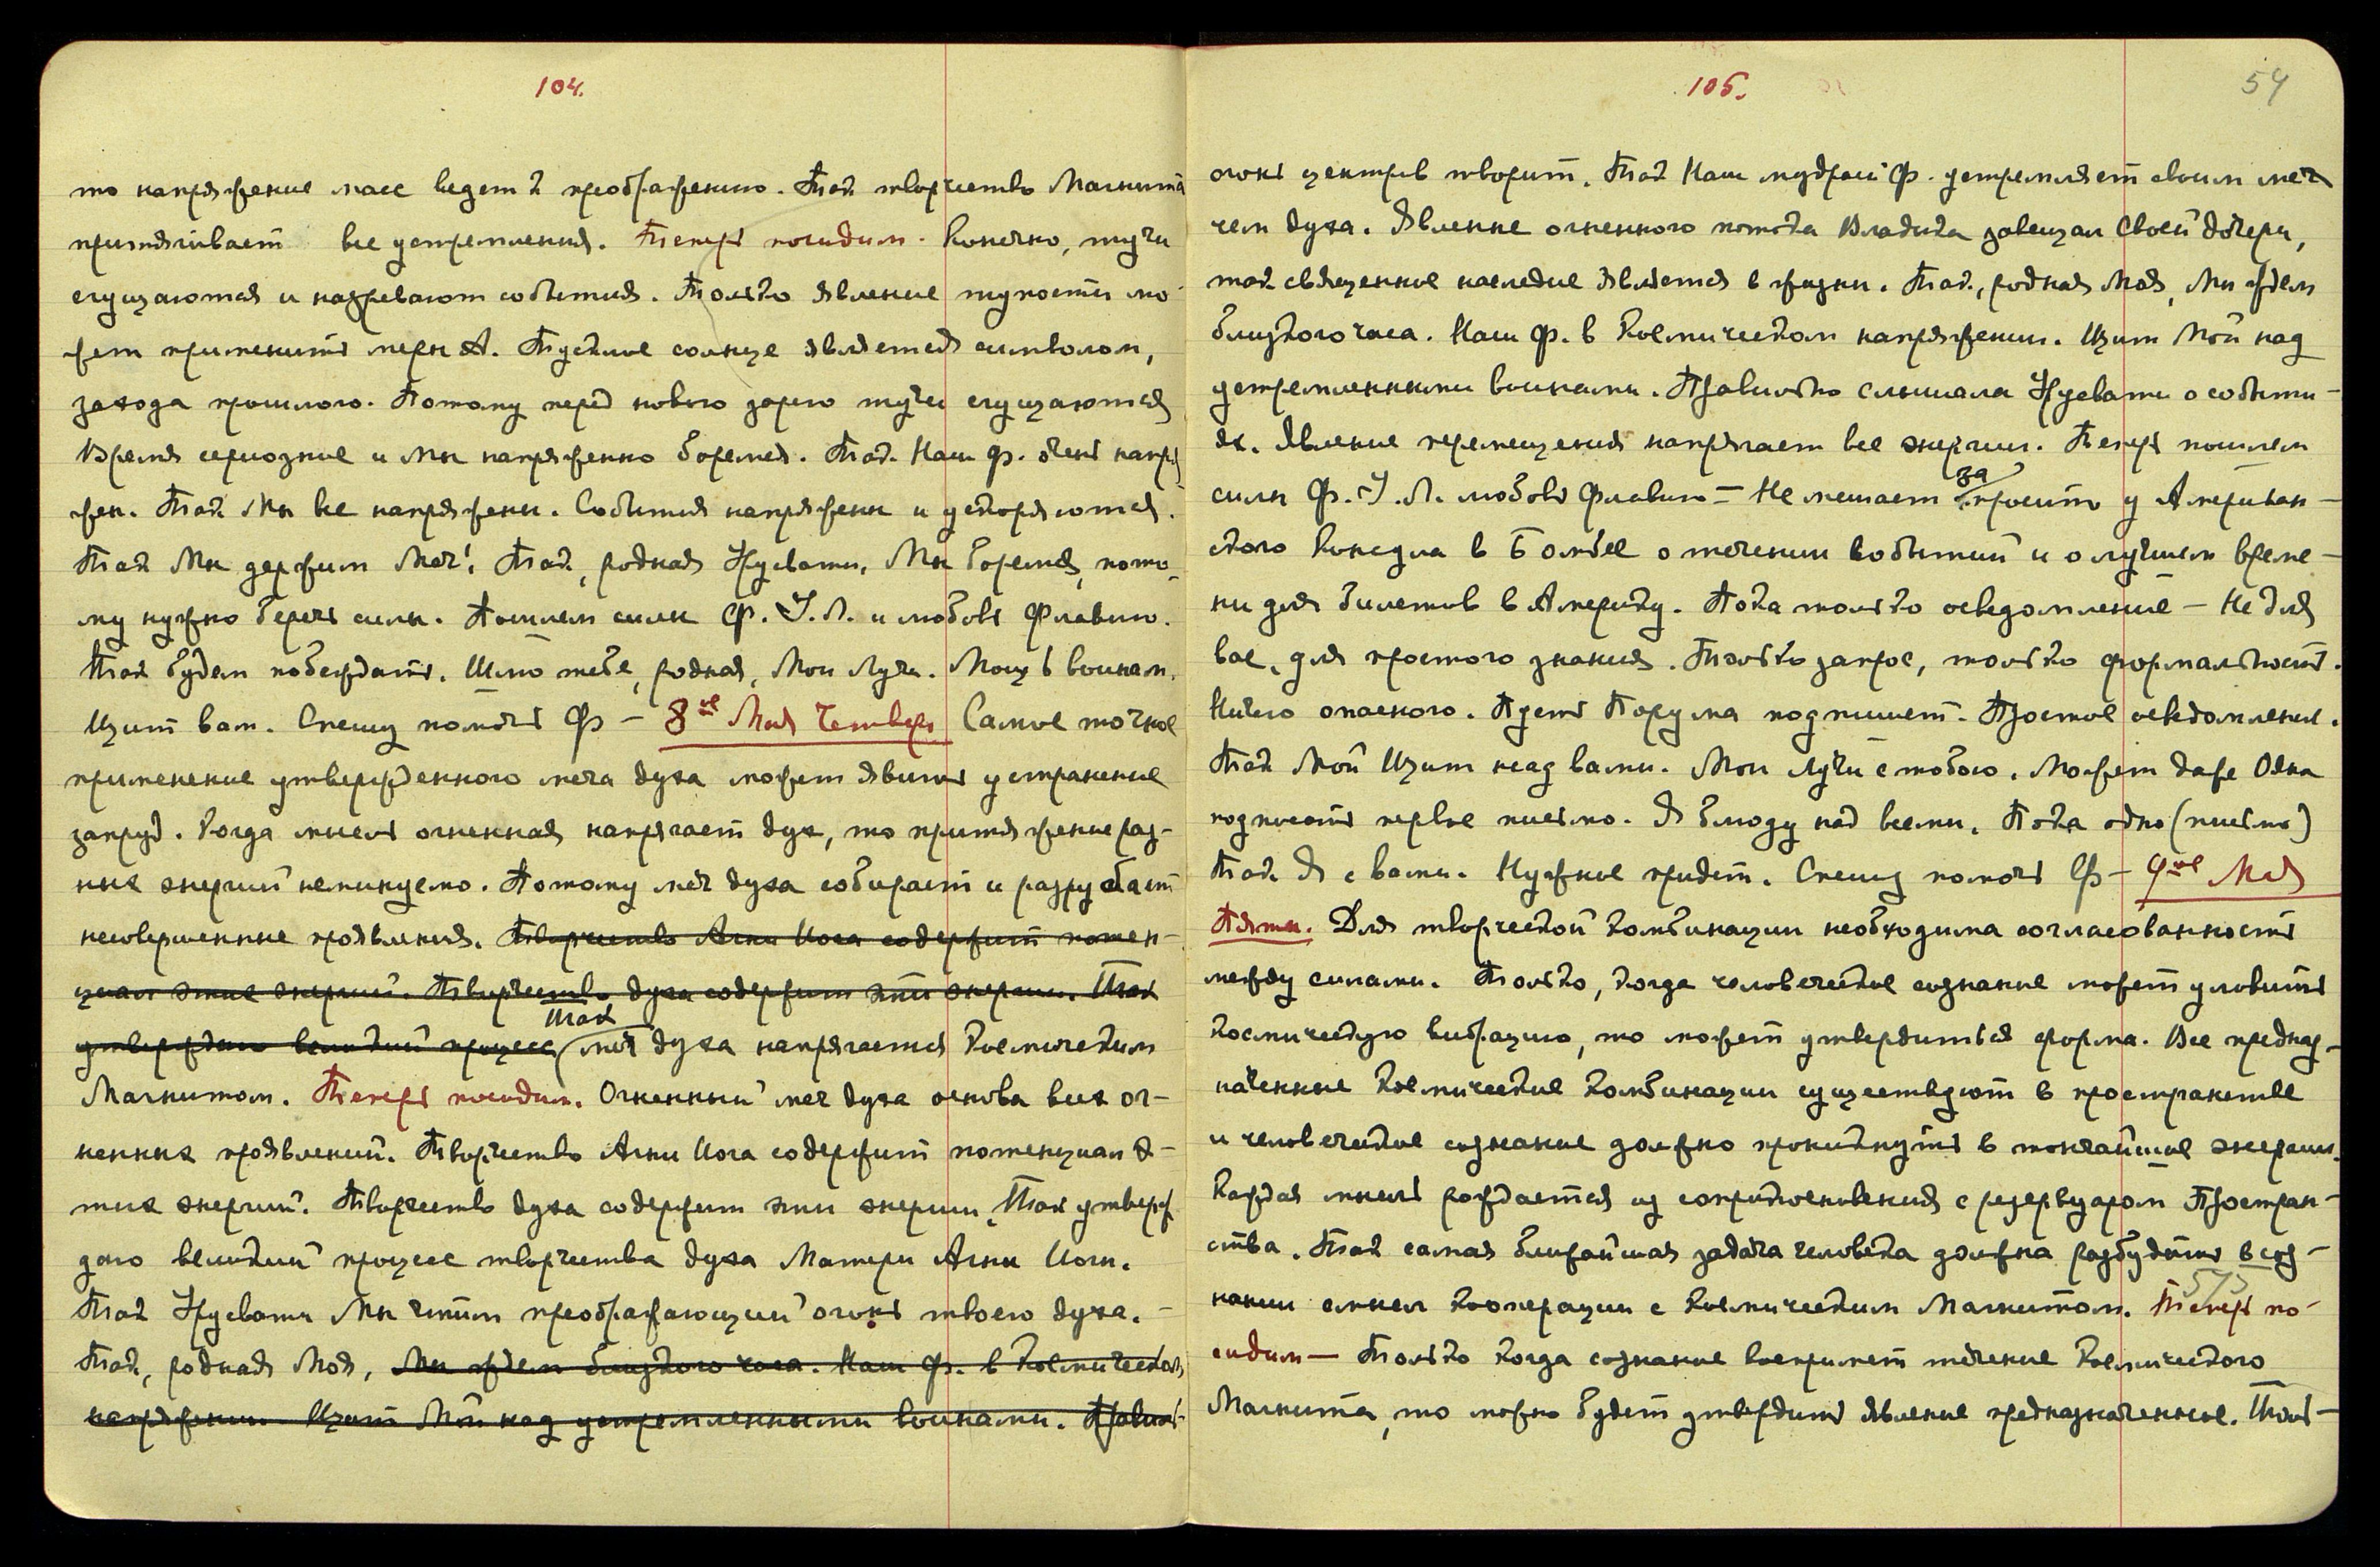 104.
то напряжение масс ведет к преображению. Так творчество Магнита
притягивает все устремления. Теперь посидим. Конечно, тучи
сгущаются и назревают события. Только явление тупости мо-
жет применить меры А. Тусклое солнце является символом,
захода прошлого. Потому перед новою зарею тучи сгущаются
Время серьозное и Мы напряженно боремся. Так Наш Ф. очень напря
жен. Так Мы все напряжены. События напряжены и ускоряются.
Так Мы держим Меч! Так, родная Урусвати, Мы боремся, пото-
му нужно беречь силы. Пошлем силы Ф. У. Л. и любовь Флавию.
Так будем побеждать. Шлю тебе, родная, Мои Лучи. Мощь воинам.
Щит вам. Спешу помочь Ф – 8ое Мая Четверг Самое точное
применение утвержденного меча духа может явить устранение
запруд. Когда мысль огненная напрягает дух, то притяжение раз-
ных энергий неминуемо. Потому меч духа собирает и разрубает
несовершенные проявления. Творчество Агни Йога содержит потен-
циал этих энергий. Творчество духа содержит эти энергии. Так
утверждаю великий процесс Так меч духа напрягается Космическим
Магнитом. Теперь посидим. Огненный меч духа основа всех ог-
ненных проявлений. Творчество Агни Йога содержит потенциал э-
тих энергий. Творчество духа содержит эти энергии, Так утверж
даю великий процесс творчества духа Матери Агни Йоги.
Так Урусвати Мы чтим преображающий огонь твоего духа. –
Так, родная Моя, Мы ждем близкого часа. Наш Ф. в Космическом
напряжении Щит Мой над устремленными воинами. Правиль-
105.
54
огонь центров творит. Так Наш мудрый Ф. устремляет своим меч
чем духа. Явление огненного потока Владыка завещал Своей дочери,
так священное наследие является в жизни. Так, родная Моя, Мы ждем
близкого часа. Наш Ф. в Космическом напряжении. Щит Мой над
устремленными воинами. Правильно слышала Урусвати о событи-
ях. Явление перемещения напрягает все энергии. Теперь пошлем
силы Ф. У. Л. любовь Флавию – Не мешает за просить у Американ-
ского Консула в Бомбее о течении событий и о лучшем време-
ни для билетов в Америку. Пока только осведомление – Не для
вас, для простого знания. Только запрос, только формальность.
Ничего опасного. Пусть Порума подпишет. Простое осведомление.
Так Мой Щит над вами. Мои Лучи с тобою. Может даже Ояна
подписать первое письмо. Я блюду над всеми. Пока одно (письмо)
Так Я с вами. Нужное придет. Спешу помочь Ф – 9ое Мая
Пятн. Для творческой комбинации необходима согласованность
между силами. Только, когда человеческое сознание может уловить
космическую вибрацию, то может утвердиться форма. Все предназ-
наченные космические комбинации существуют в пространстве
и человеческое сознание должно проникнуть в тончайшие энергии.
Каждая мысль рождается из соприкосновения с резервуаром Простран-
ства. Так самая ближайшая задача человека должна разбудить в соз-
573
нании смысл кооперации с Космическим Магнитом. Теперь по-
сидим – Только когда сознание воспримет течение Космического
Магнита, то можно будет утвердить явление предназначенное. Толь-